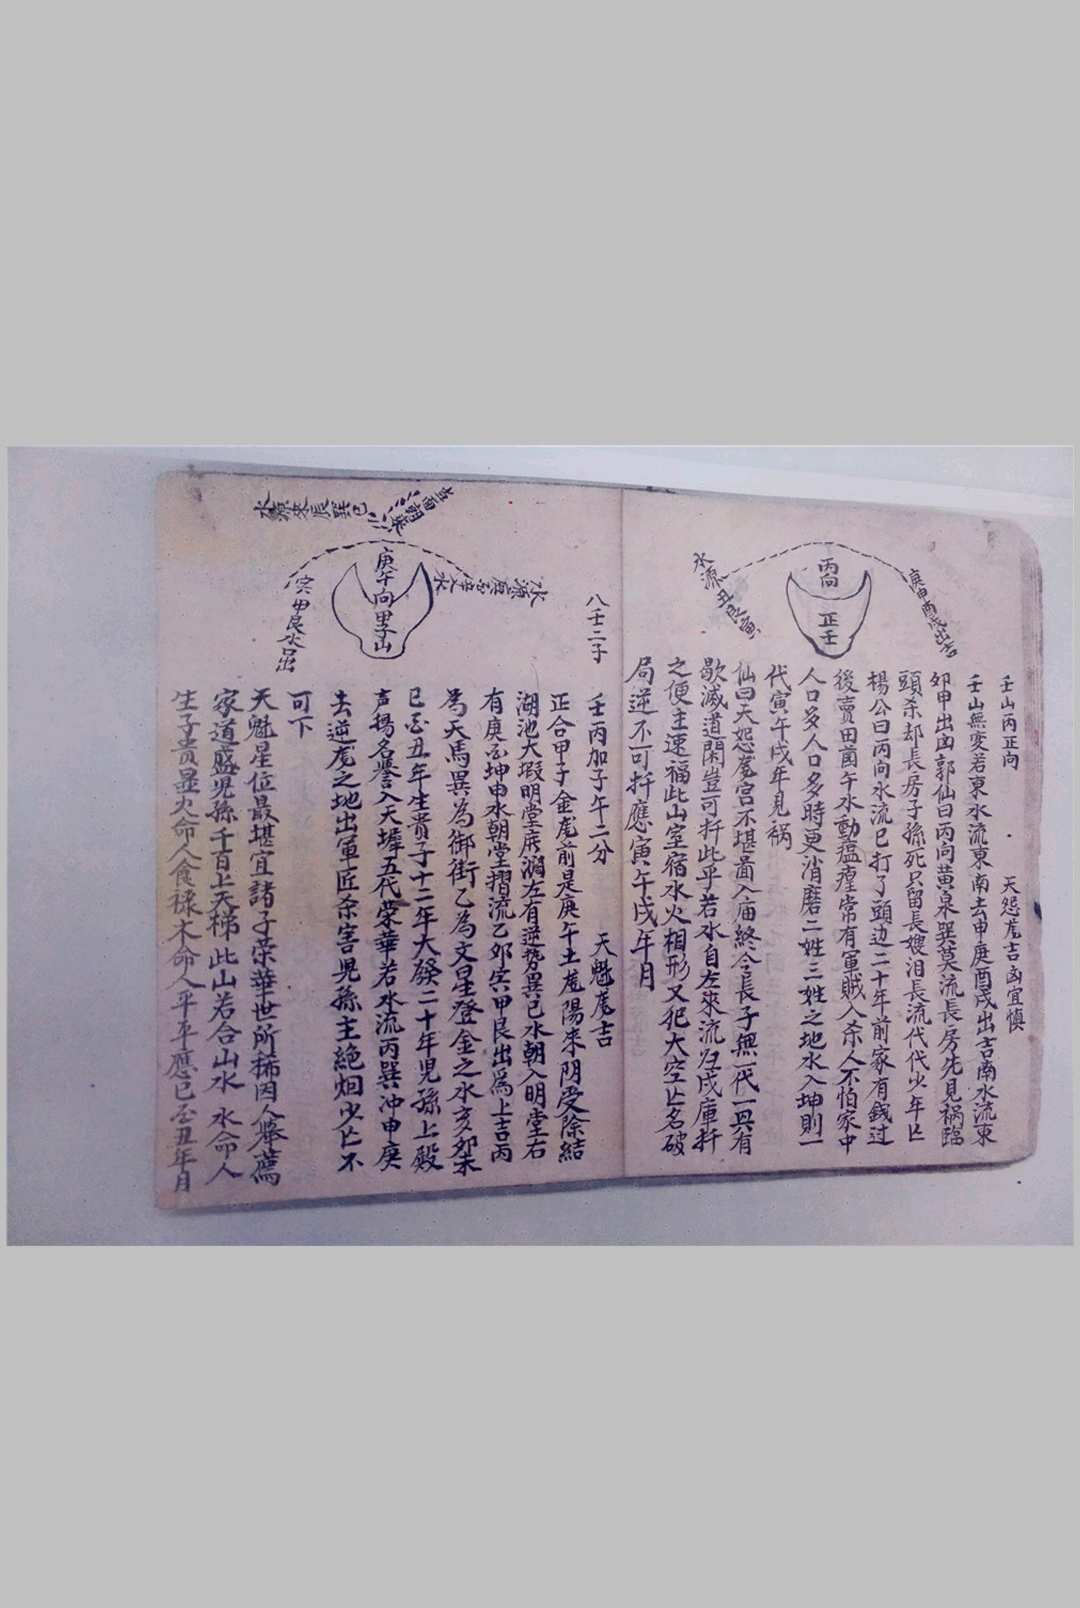 水源丑艮寅
丙向
正壬
庚申酉戌出吉
壬山丙正向
天怨龙吉凶宜慎
壬山無变若東水流東南去申庚酉戌出吉南水流東
卯甲出凶郭仙曰丙向黄泉巽莫流長房先見禍臨
頭杀却長房子孫死只留長嫂泪長流代代少年亡
楊公曰丙向水流巳打了頭边二十年前家有錢过
後賣田茵午水動瘟瘟常有軍賊入杀人不怕家中
人口多人口多時更消磨二姓三姓之地水入坤則一
代寅午戌年見禍
仙曰天怨龙宫不堪畐入庙終令長子無一代一興有
歇滅道閑豈可扦此乎若水自左來流归戌庫扦
之便主速福此山室宿水火相形又犯大空亡名破
局逆不可扦應寅午戌年月
八壬二子
壬丙加子午二分
天魁龙吉
正合甲子金龙前是庚午土龙陽来阴受除結
湖池大塅明堂床澗左有逆势巽巳水朝入明堂右
有庚酉坤申水朝堂摺流乙卯寅甲艮出為上吉丙
為天馬巽為御街乙為文星登金之水亥卯未
巳酉丑年生貴子十二年大發二十年児孫上殿
声揚名譽入天墀五代荣華若水流丙巽冲申庚
去逆龙之地出軍匠杀害児孫主絶烟少亡不
可下
天魁星位最堪宜諸子荣華世所稀因人舉薦
家道盛児孫千百上天梯此山若合山水 水命人
生子貴显火命人食禄木命人平平應巳酉丑年月
水源庚酉辛入水
庚午向甲子山
當面朝来
水源來辰巽巳
寅甲艮水口出